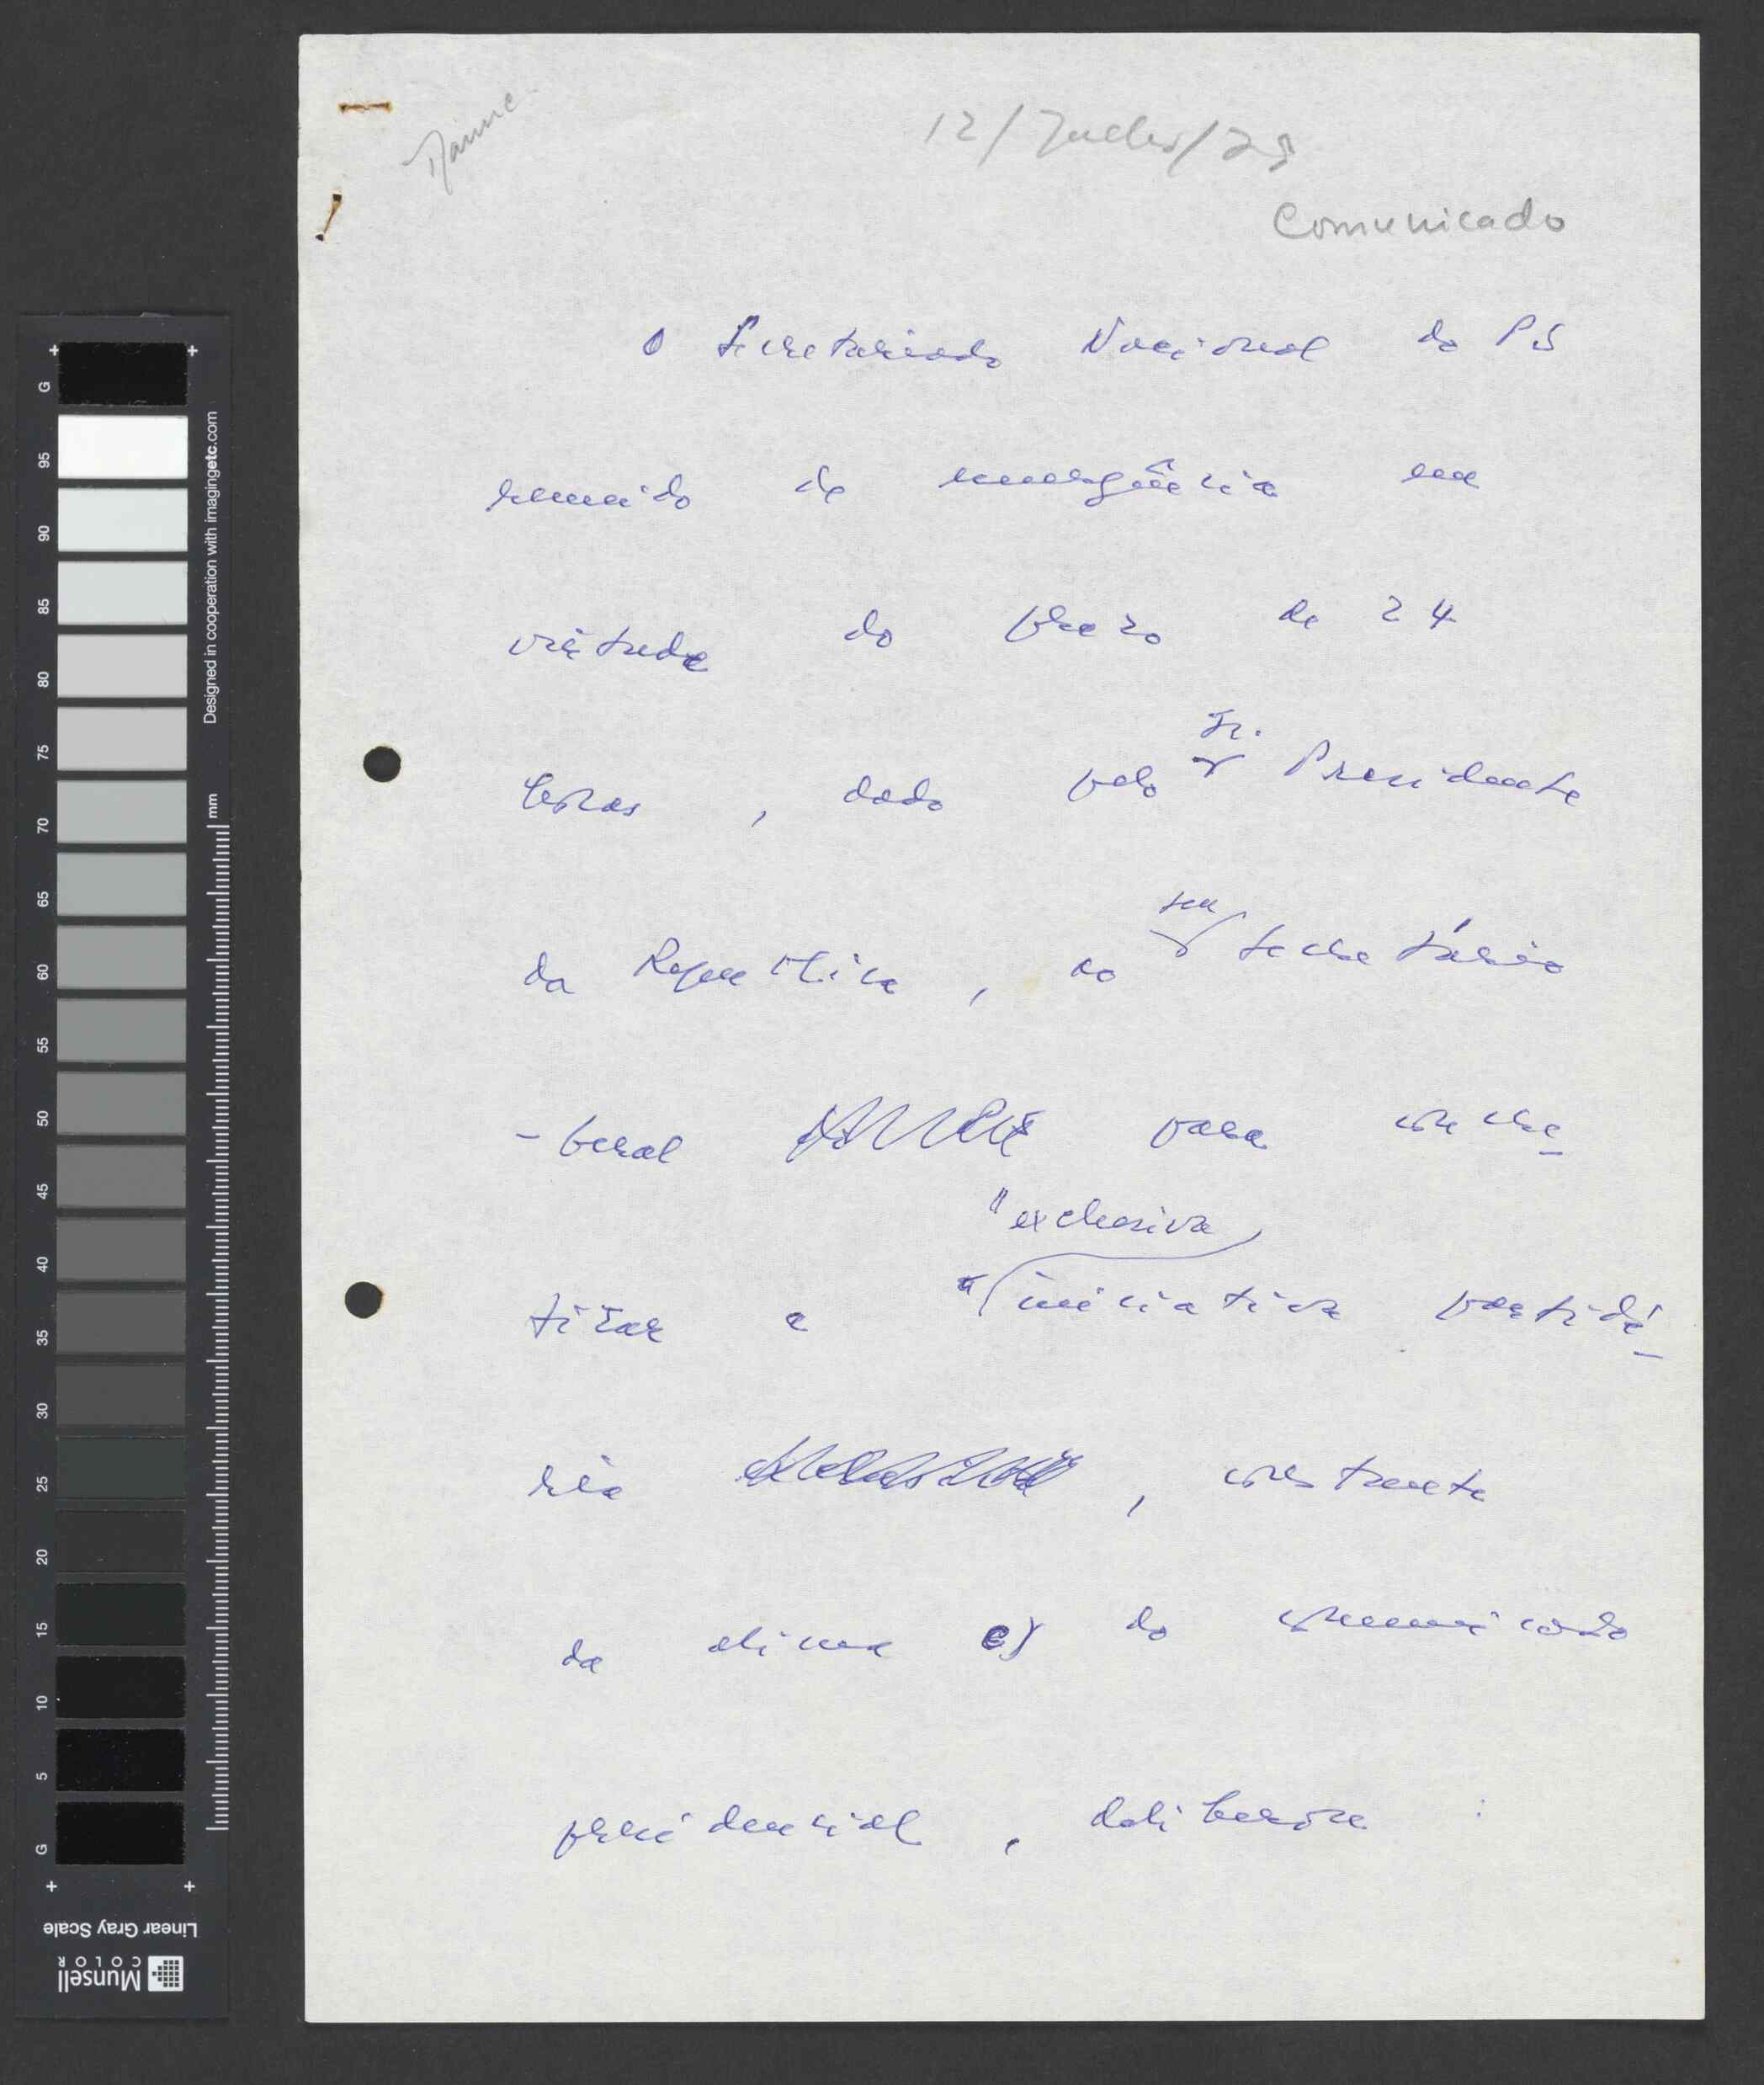 12/Julho/79
Comunicado
O Secretariado Nacional do PS
reunido de emergência em
virtude do prazo de 24
horas, dado pelo Sr. Presidente
da República, ao seu Secretário
-Geral para concre-
tizar a "exclusiva iniciativa partidá-
ria, constante
da alínea c) do comunicado
presidencial, delibera:
G
95
90
85
80
75
70
65
60
55
50
45
40
35
30
25
20
15
10
5
G
Designed in cooperation with imagingetc.com
mm
Linear Gray Scale
Munsell
COLOR